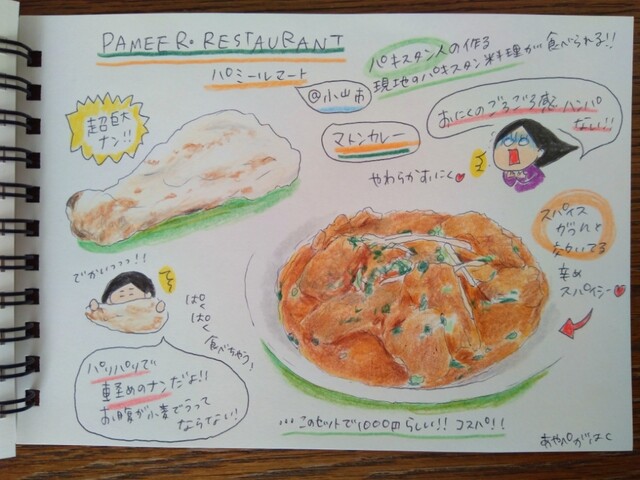 PAMEER・RESTAURANT
パミールマート
@小山市
パキスタン人の作る
現地のパキスタン料理が食べられる!!
超巨大
ナン!!
マトンカレー
やわらかすにく
おにくのごろごろ感ハンパ
ない!!
スパイス
がうんと
効いてる
辛め
スパイシー
でかいっっっ!!
ぱく
ぱく
食べちゃう!
パリパリで
軽めのナンだよ!!
お腹が小麦でうって
ならない!
...このセットで1000円らしい!! コスパ!!